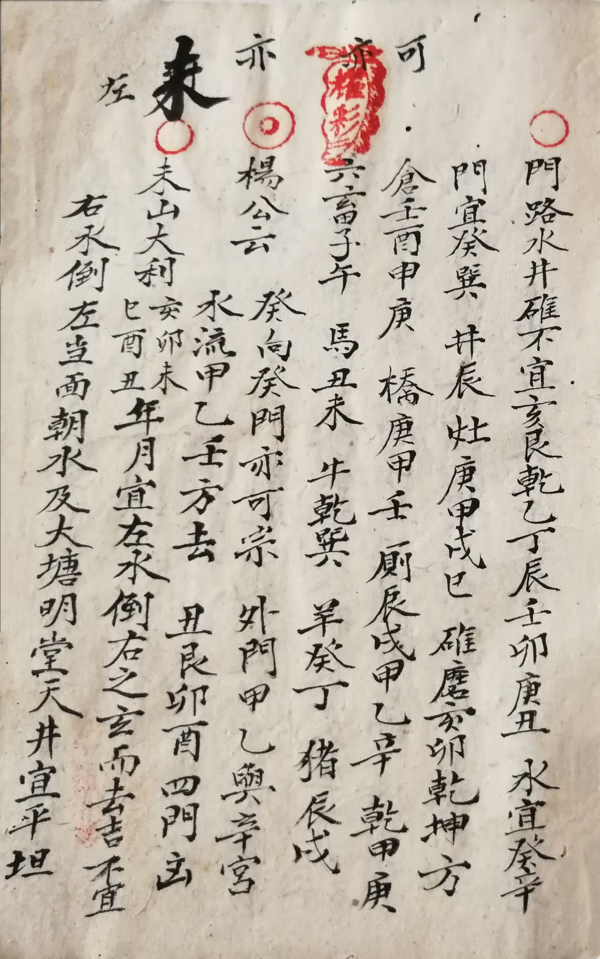 門路水井碓不宜亥艮乾乙丁辰壬卯庚丑 水宜癸辛
門宜癸巽 井辰 灶庚甲戌巳 碓磨亥卯乾坤方
可
倉壬酉甲庚 橋庚甲壬 厠辰戌甲乙辛 乾甲庚
亦
六畜子午 馬丑未 牛乾巽 羊癸丁 猪辰戌
亦
楊公云 癸向癸門亦可宗 外門甲乙與辛宮
水流甲乙壬方去 丑艮卯酉四門凶
未
未山大利亥卯未巳酉丑年月宜左水倒右之玄而去吉 不宜
左
右水倒左当面朝水及大塘明堂天井宜平坦